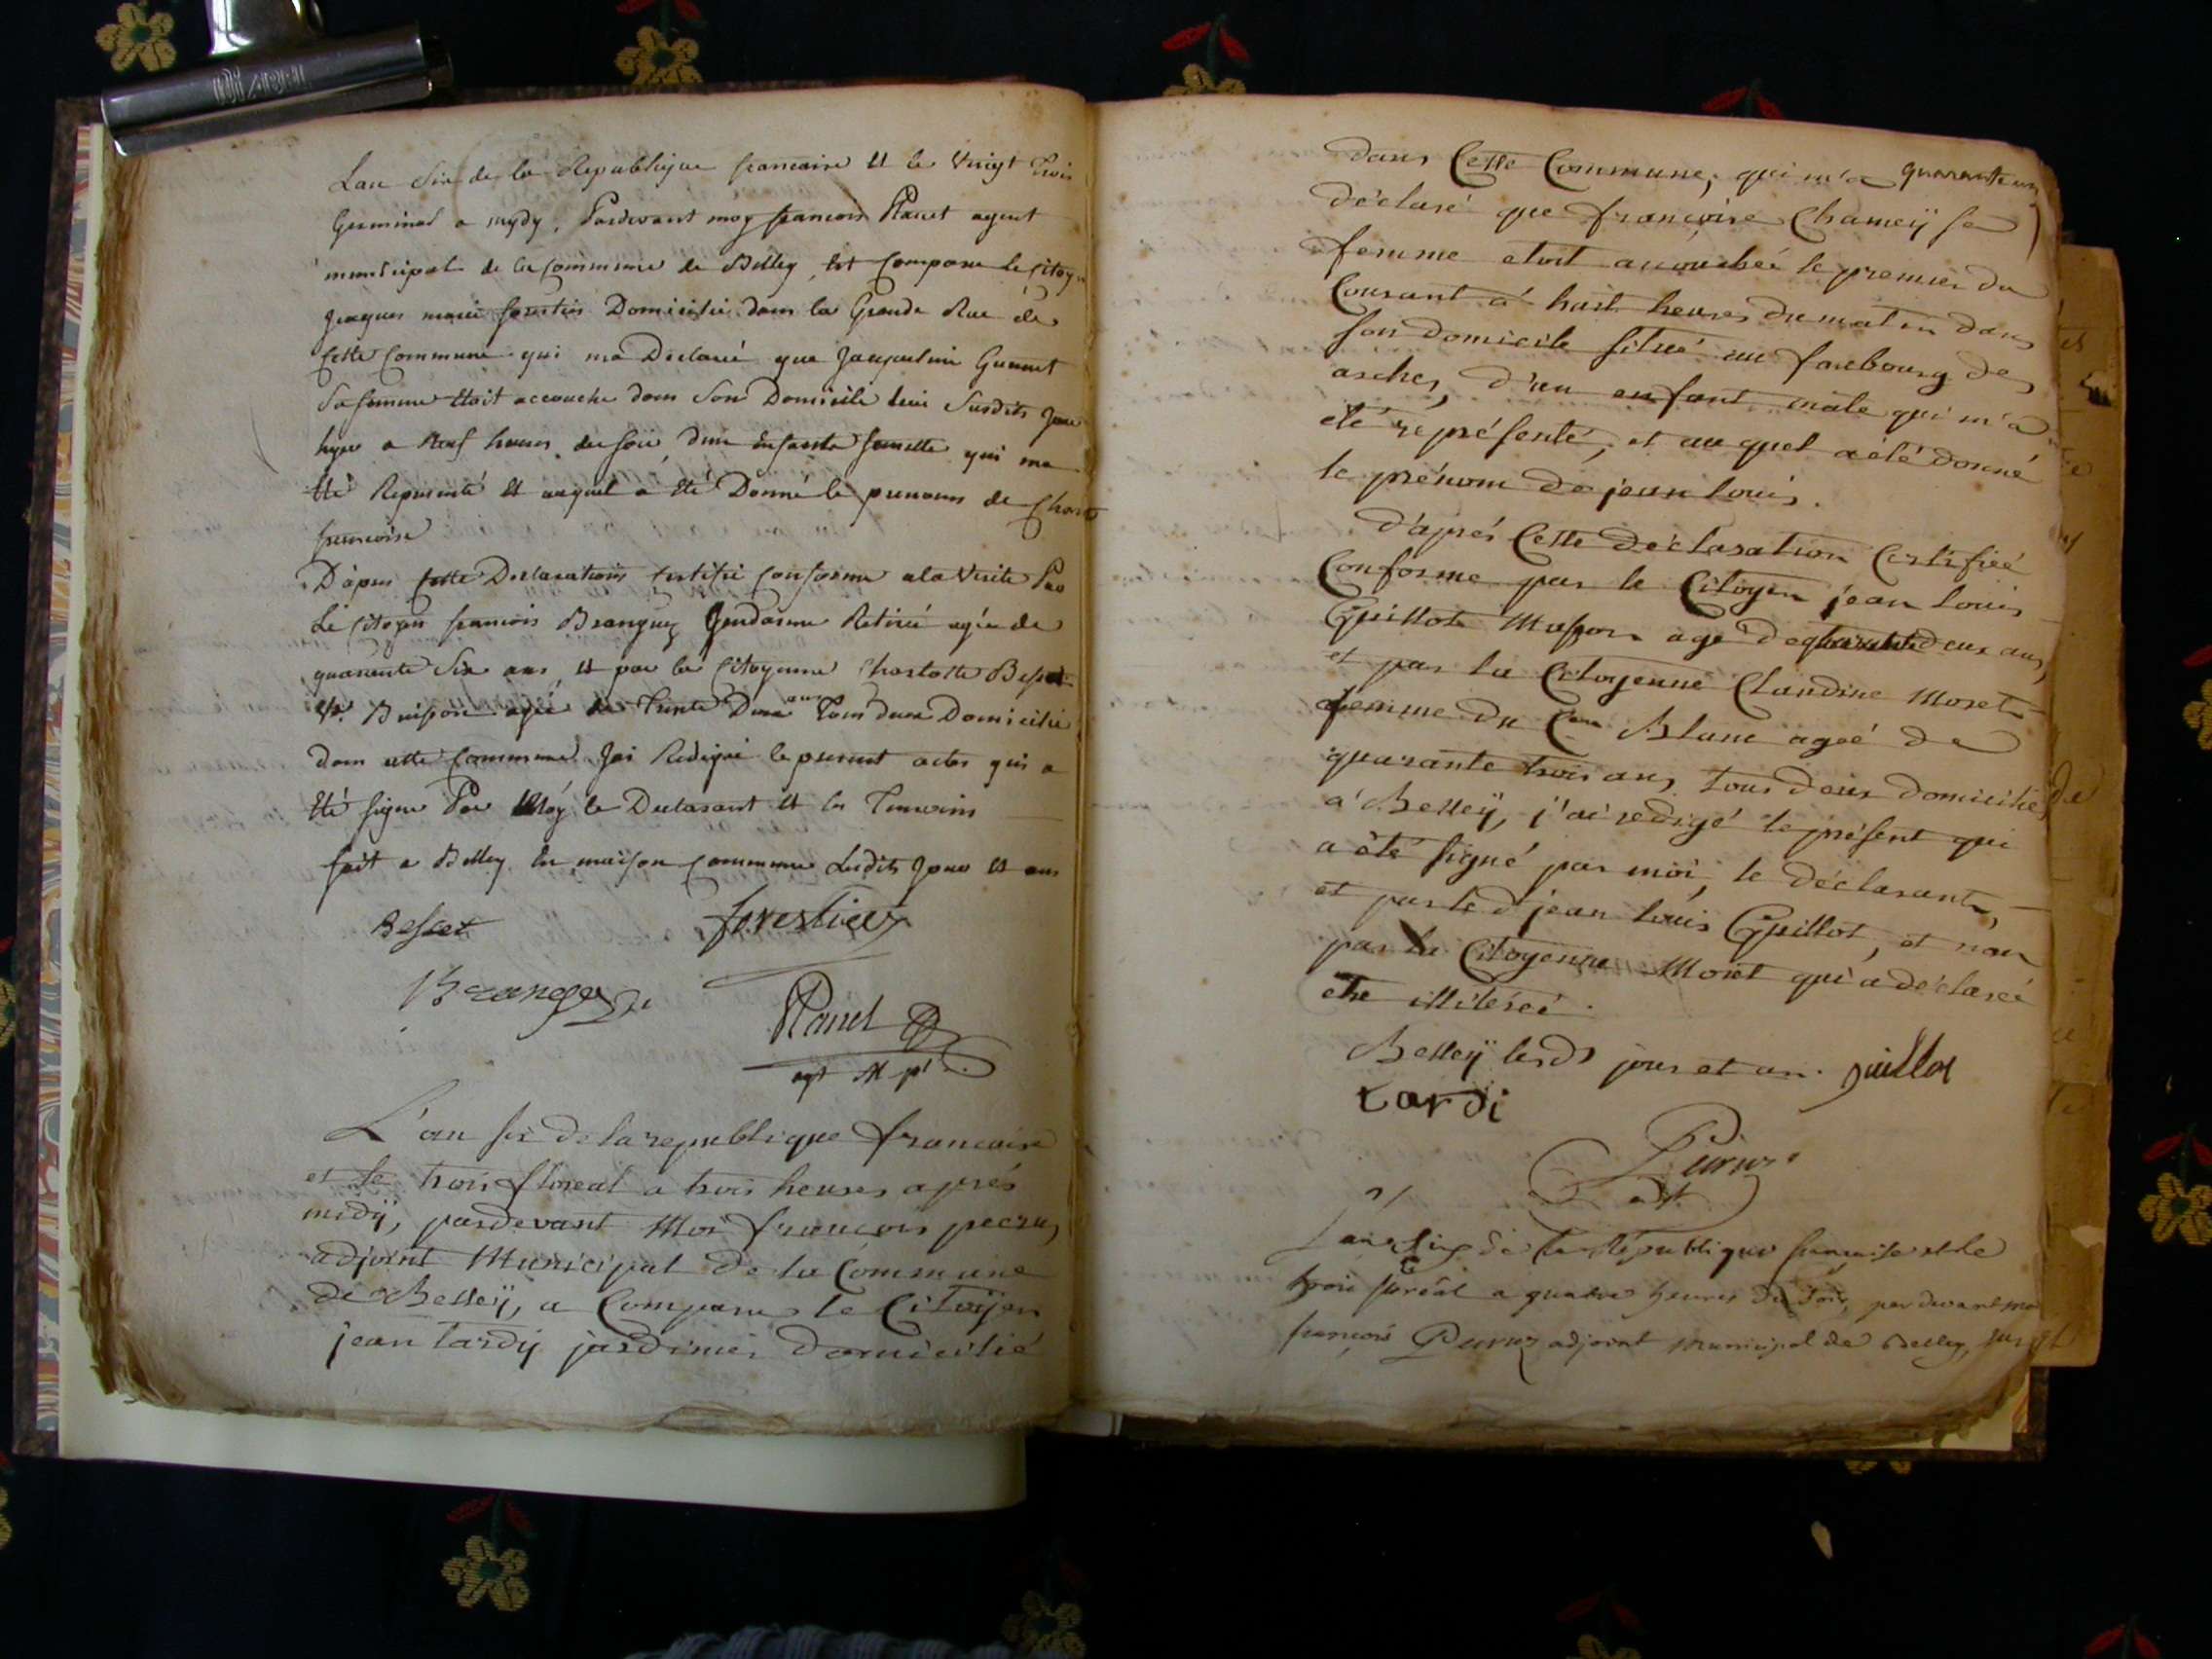 Lan Six de la Republique francaise et le Vingt trois
Germinal a mydy, Pardevant moy francois Planet agent
municipal de la Commune de Belley, est Comparu le Citoyen
Jaques marie forestier Domicilié dans la Grande Rue de
Cette Commune qui ma Déclaré que Jacqueline
Sa femme Etoit accouché dans Son Domicile Susdits Jour
hyer a Neuf heures du soir, dun Enfants femelle qui ma
Eté Représenté et auquel a Eté Donné le prenoms de
francoise
D'apres Cette Declaration Certifié Conforme a la Visite Par
Le Citoyen francois Branguz Gendarme Retiré agée de
quarante Six ans et par la Citoyenne Charlotte Besset
agée de Trente Deux ans Tous deux Domicilié
dans cette Commune Jai Rédigé le present actes qui a
Eté signé Par Moy le Declarant et les Temoins
fait a Belley en maison Commune Ledits Jour et ans
Besset forestier
Planet
agt Mpl
L'an six de la republique francaise
et le trois floreal a trois heures aprés
midÿ, pardevant Moi francois pecruz
adjoint Municipal de la Commune
de Belleÿ, a Comparu le Citoÿen
jean tardÿ jardinier domicilié
quarante un
dans Cette Commune, qui m'a
déclaré que francoise Chameÿ sa
femme etoit accouchéé le premier du
Courant a huit heures du matin dans
son domicile situé au faubourg des
arches, d'un enfant mâle qui m'a
été représenté, et auquel a été donné
le prénom de jean louis.
d'aprés Cette déclaration Certifiéé
Conforme par le Citoyen jean louis
Guillot Masson agé de quarante deux ans,
et par la Citoyenne Claudine Moret
femme du Cen Blanc agéé de
quarante trois ans tous deux domiciliés
a Belleÿ, j'ai redigé le présent qui
a été signé par moi, le déclarant,
et par le d. jean louis Guillot, et non
par la Citoyenne Moret qui a déclaré
etre illiteréé.
Belleÿ lesds jour et an. guillot
tardi
adjt
Lan Six de la République française et le
trois floréal a quatre heures du soir, par devant moi
françois adjoint municipal de Belley,